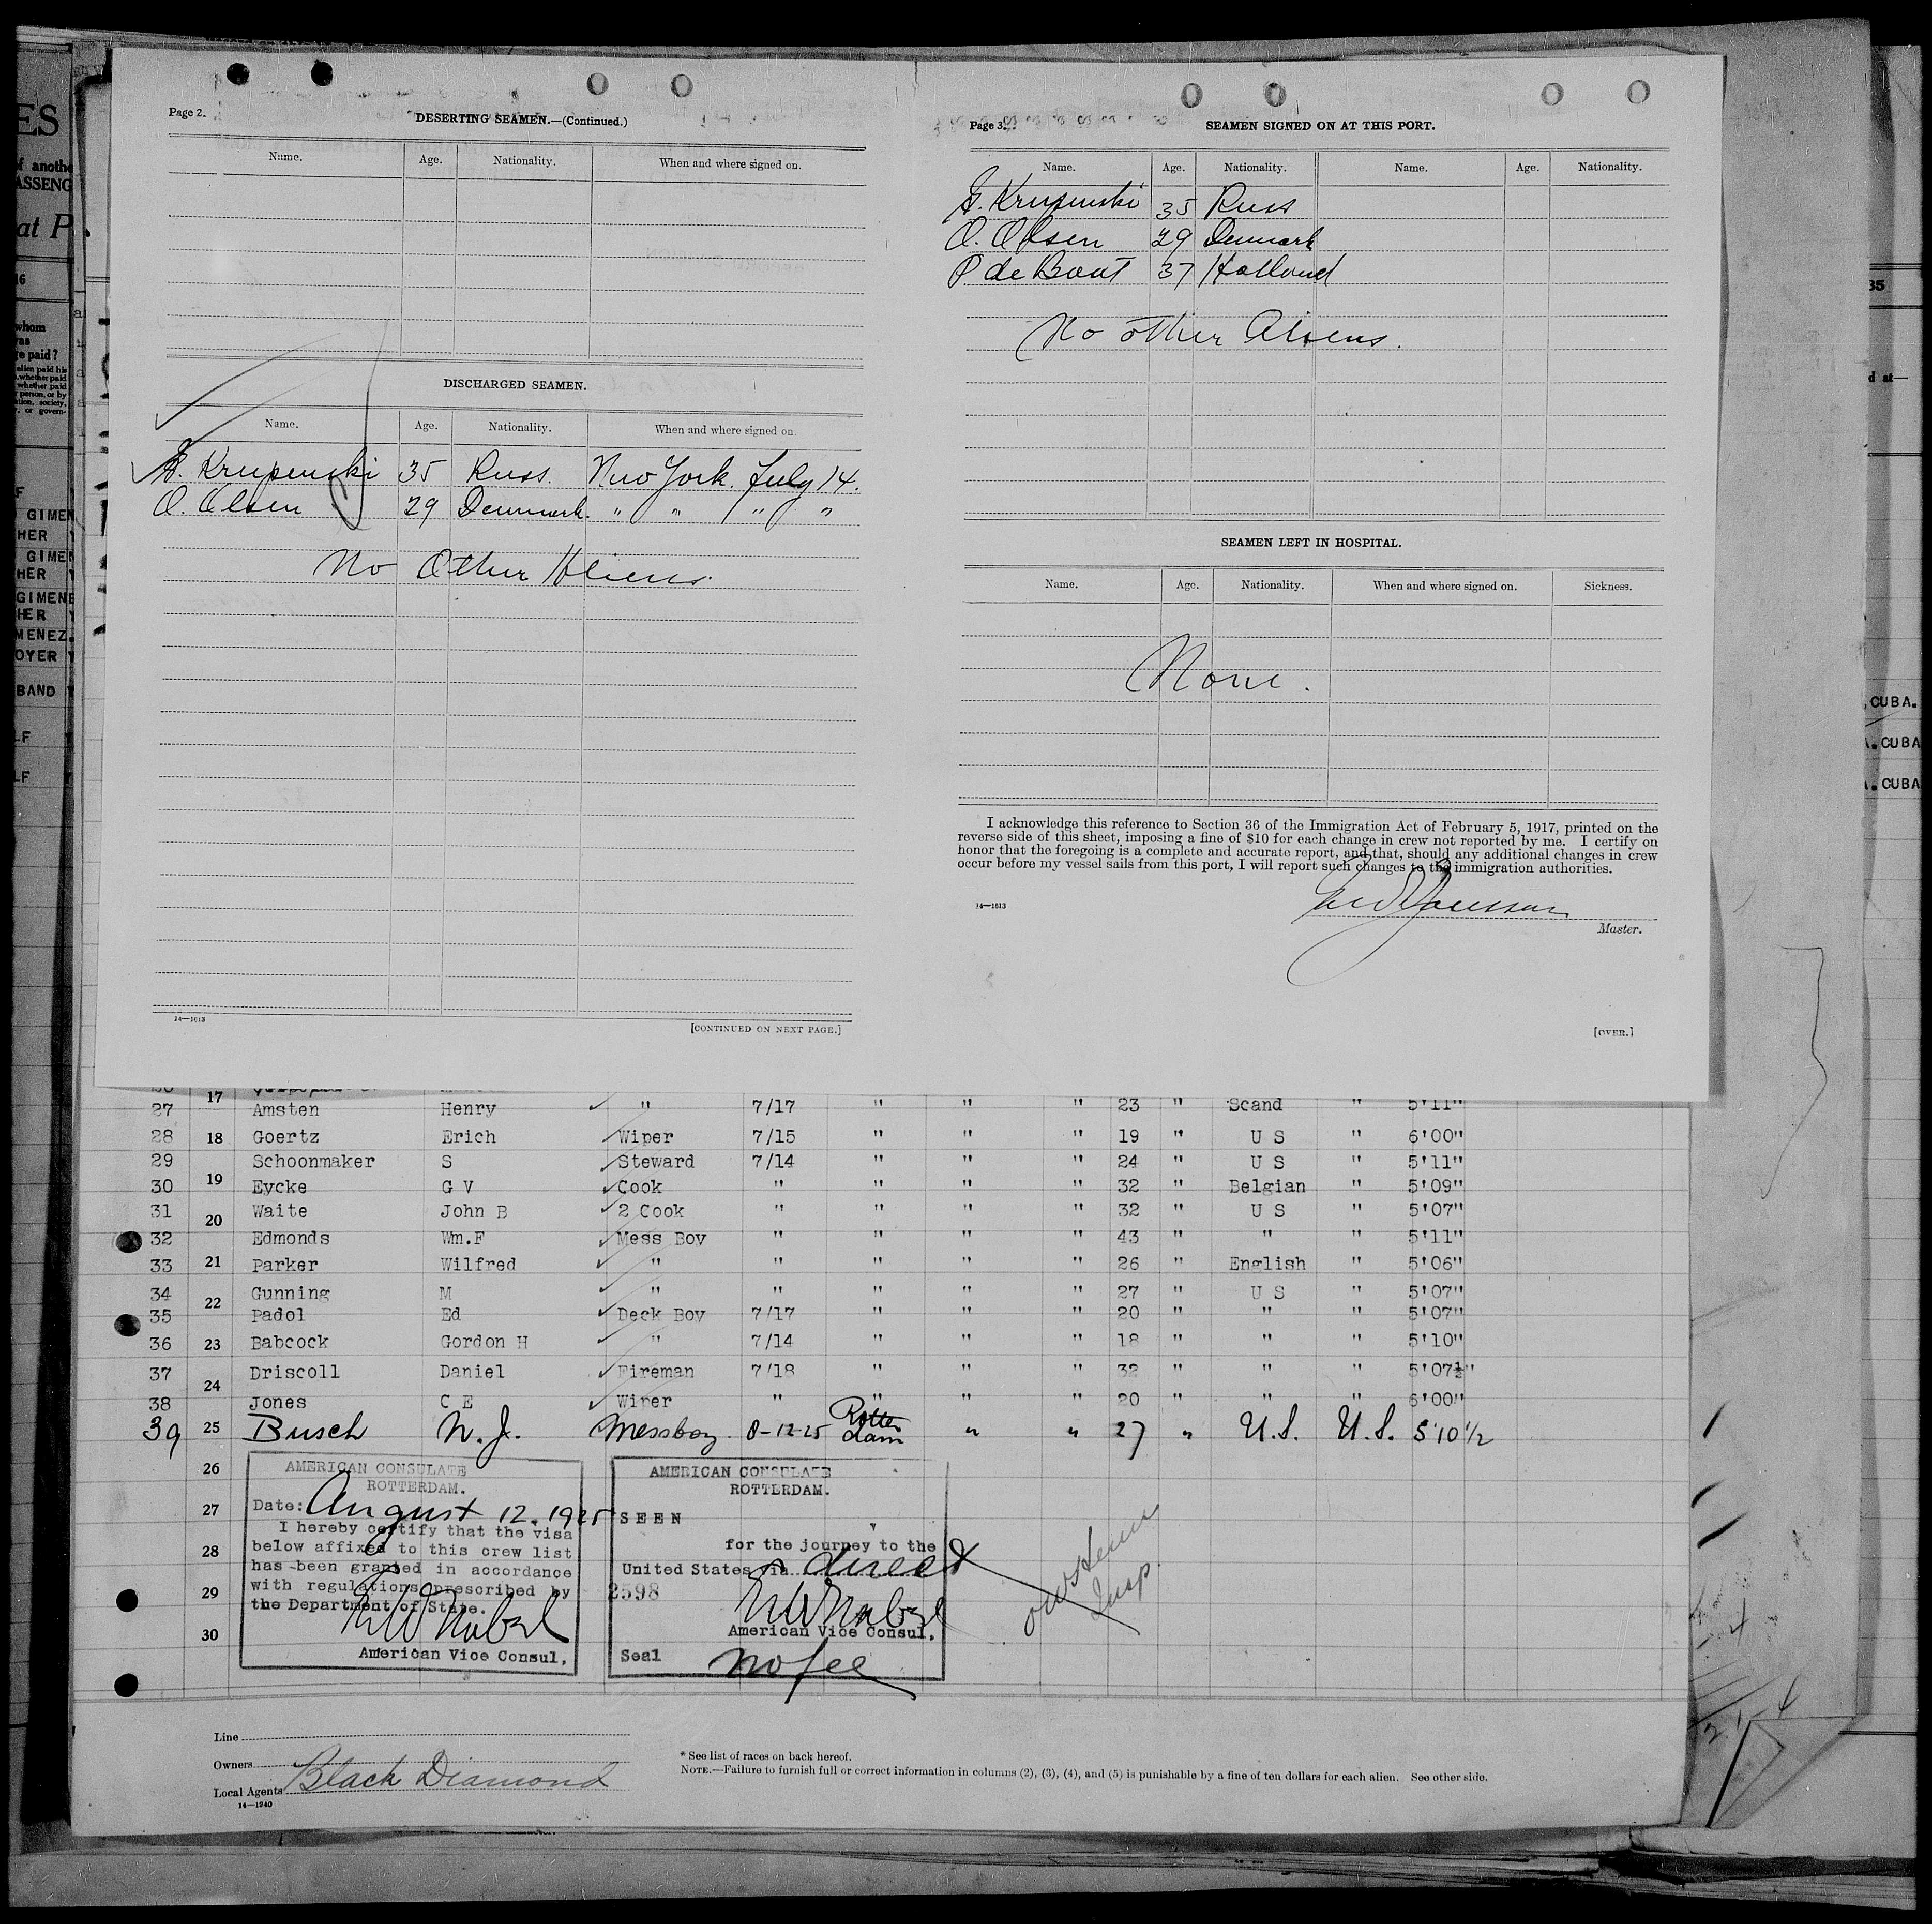 Page 2.
DESERTING SEAMEN.—(Continued.)
Name. Age. Nationality. When and where signed on.
DISCHARGED SEAMEN.
Name. Age. Nationality. When and where signed on.
Krupenski 35 Russ. New York. July 14.
O. Olsen 29 Denmark. " " " "
No Other Aliens.
14—1613
[CONTINUED ON NEXT PAGE.]
Page 3.
SEAMEN SIGNED ON AT THIS PORT.
Name. Age. Nationality. Name. Age. Nationality.
Krupenski 35 Russ
O. Olsen 29 Denmark
P de Bout 37 Holland
No other Aliens.
SEAMEN LEFT IN HOSPITAL.
Name. Age. Nationality. When and where signed on. Sickness.
None.
I acknowledge this reference to Section 36 of the Immigration Act of February 5, 1917, printed on the
reverse side of this sheet, imposing a fine of $10 for each change in crew not reported by me. I certify on
honor that the foregoing is a complete and accurate report, and that, should any additional changes in crew
occur before my vessel sails from this port, I will report such changes to the immigration authorities.
14—1613
Master.
[OVER.]
17
27 Amsten Henry " 7/17 " " " 23 " Scand " 5'11"
28 18 Goertz Erich Wiper 7/15 " " " 19 " U S " 6'00"
29 Schoonmaker S Steward 7/14 " " " 24 " U S " 5'11"
30 19 Eycke G V Cook " " " " 32 " Belgian " 5'09"
31 20 Waite John B 2 Cook " " " " 32 " U S " 5'07"
32 Edmonds Wm.F Mess Boy " " " " 43 " " " 5'11"
33 21 Parker Wilfred " " " " " 26 " English " 5'06"
34 22 Gunning M " " " " " 27 " U S " 5'07"
35 Padol Ed Deck Boy 7/17 " " " 20 " " " 5'07"
36 23 Babcock Gordon H " 7/14 " " " 18 " " " 5'10"
37 Driscoll Daniel Fireman 7/18 " " " 32 " " " 5'07½"
24
38 Jones C E Wiper " " " " 20 " " " 6'00"
39 25 Busch N. J. Messboy 8-12-25 Rotterdam " " 27 " U.S. U.S. 5'10 1/2
26
27
28
29
30
AMERICAN CONSULATE
ROTTERDAM.
Date: August 12, 1925
I hereby certify that the visa
below affixed to this crew list
has been granted in accordance
with regulations prescribed by
the Department of State.
American Vice Consul.
AMERICAN CONSULATE
ROTTERDAM.
SEEN
for the journey to the
United States via direct
2598
American Vice Consul.
Seal no fee
Insp.
Line
Owners
Local Agents Black Diamond
14—1240
* See list of races on back hereof.
NOTE.—Failure to furnish full or correct information in columns (2), (3), (4), and (5) is punishable by a fine of ten dollars for each alien. See other side.
ES
ASSENG
at P
whom
e paid?
GIMEN
HER
GIMEN
HER
GIMENE
HER
MENEZ.
OYER
BAND
LF
LF
35
d at—
,CUBA.
A.CUBA
A.CUBA